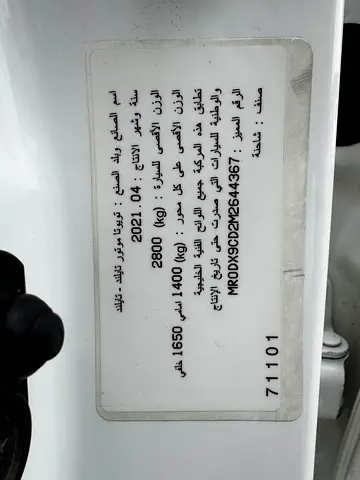 اسم الصانع وبلد الصنع : تويوتا موتور تايلند - تايلند
سنة وشهر الانتاج : 2021.04
الوزن الأقصى للسيارة : (kg) 2800
الوزن الأقصى على كل محور : (kg) 1400 اساسي 1650 خلفي
تطابق هذه المركبة جميع اللوائح الفنية الخليجية
والوطنية للسيارات التي صدرت حتى تاريخ الإنتاج
الرقم المميز : MR0DX9CD2M2644367
صنف : شاحنة
71101